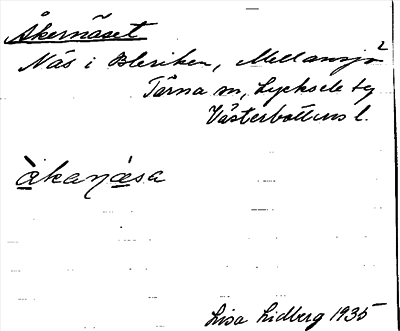 Åkernäset
Näs i Bleriken, Mellansjö 2
Tärna sn, Lycksele tg
Västerbottens l.
åkanäsa
Lisa Lidberg 1935